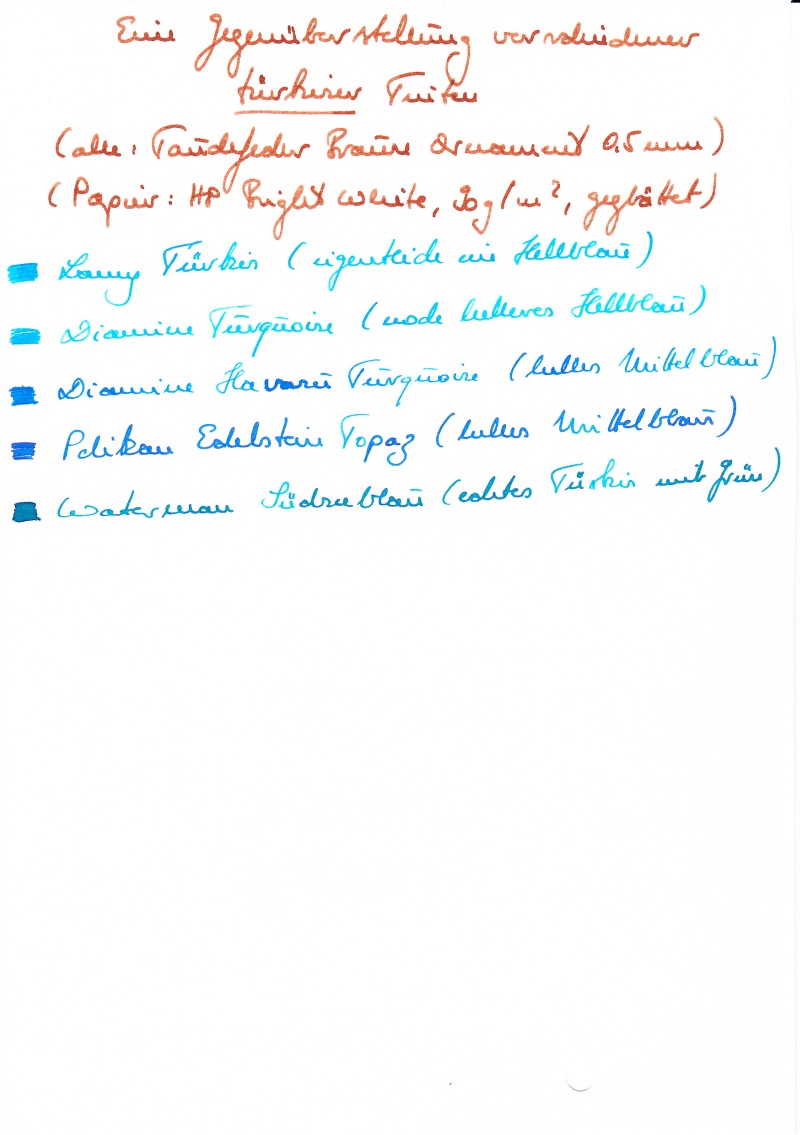 Eine Gegenüberstellung verschiedener
türkiser Tinten
(alle: Tauchfeder Brause Ornament 0,5 mm)
(Papier: HP Bright White, 90g/m², geglättet)
Lamy Türkis (eigentlich ein Hellblau)
Diamine Turquoise (noch helleres Hellblau)
Diamine Havasu Turquoise (helles Mittelblau)
Pelikan Edelstein Topaz (helles Mittelblau)
Waterman Südseeblau (echtes Türkis mit Grün)